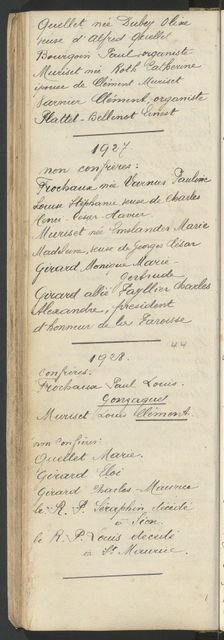 Quellet née Dubey Olive
veuve d'Alfred Quellet
Bourgoin Paul organiste
Muriset née Roth Catherine
épouse de Clément Muriset
Varnier Clément, organiste
Plattet-Bellenot Ernest
1927
non confrères:
Frochaux née Varnus Pauline
Louise Stéphanie veuve de Charles
César Xavier
Muriset née Marie
Madeleine, veuve de Georges César
Girard Monique Marie-
Gertrude
Girard allié Tayllier Charles
Alexandre, président
d'honneur de la Paroisse
44
1928.
Confrères:
Frochaux Paul Louis.
Gonzague
Muriset Louis Clément.
non confrères:
Quellet Marie.
Girard Eloi
Girard Charles-Maurice
le R. P. Séraphin décédé
à Sion.
le R. P. Louis décédé
à St Maurice.